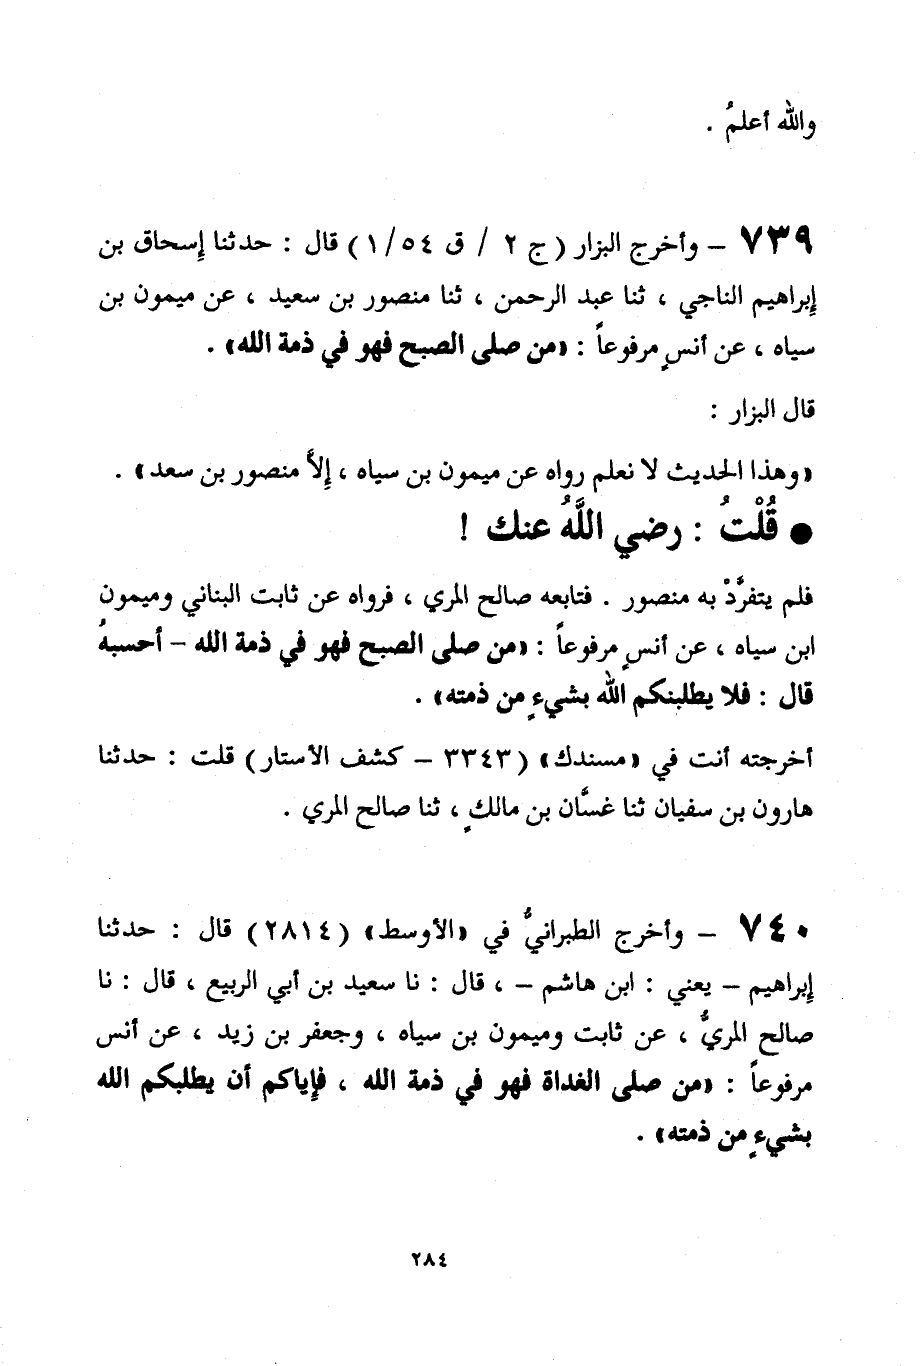 والله أعلمُ .
٧٣٩ – وأخرج البزار ( ج ٢ / ق ٥٤ /١ ) قال : حدثنا إسحاق بن
إبراهيم الناجي ، ثنا عبد الرحمن ، ثنا منصور بن سعيد ، عن ميمون بن
سياه ، عن أنسٍ مرفوعاً : «من صلى الصبح فهو في ذمة الله» .
قال البزار :
«وهذا الحديث لا نعلم رواه عن ميمون بن سياه ، إلاَّ منصور بن سعد» .
● قُلْتُ : رضي اللَّهُ عنك !
فلم يتفرَّدْ به منصور . فتابعه صالح المري ، فرواه عن ثابت البناني وميمون
ابن سياه ، عن أنسٍ مرفوعاً : «من صلى الصبح فهو في ذمة الله – أحسبهُ
قال : فلا يطلبنكم الله بشيءٍ من ذمته» .
أخرجته أنت في «مسندك» (٣٣٤٣ – كشف الأستار) قلت : حدثنا
هارون بن سفيان ثنا غسَّان بن مالكٍ ، ثنا صالح المري .
٧٤٠ – وأخرج الطبرانيُّ في «الأوسط» (٢٨١٤) قال : حدثنا
إبراهيم – يعني : ابن هاشم – ، قال : نا سعيد بن أبي الربيع ، قال : نا
صالح المريُّ ، عن ثابت وميمون بن سياه ، وجعفر بن زيد ، عن أنس
مرفوعاً : «من صلى الغداة فهو في ذمة الله ، فإياكم أن يطلبكم الله
بشيءٍ من ذمته» .
٢٨٤